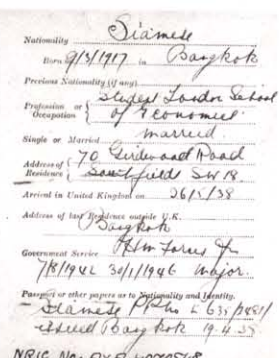 Nationality Siamese
Born 9/3/1917 in Bangkok
Previous Nationality (if any)
Profession or Occupation { Student London School
of Economics
Single or Married married
Address of Residence { 70 Girdwood Road
Southfields SW 18
Arrival in United Kingdom on 26/5/38
Address of last Residence outside U.K.
Bangkok
Government Service HM Forces
7/8/1942 30/1/1946 Major.
Passport or other papers as to Nationality and Identity.
Siamese PP No
issued Bangkok 19.4.38
NRIC No.